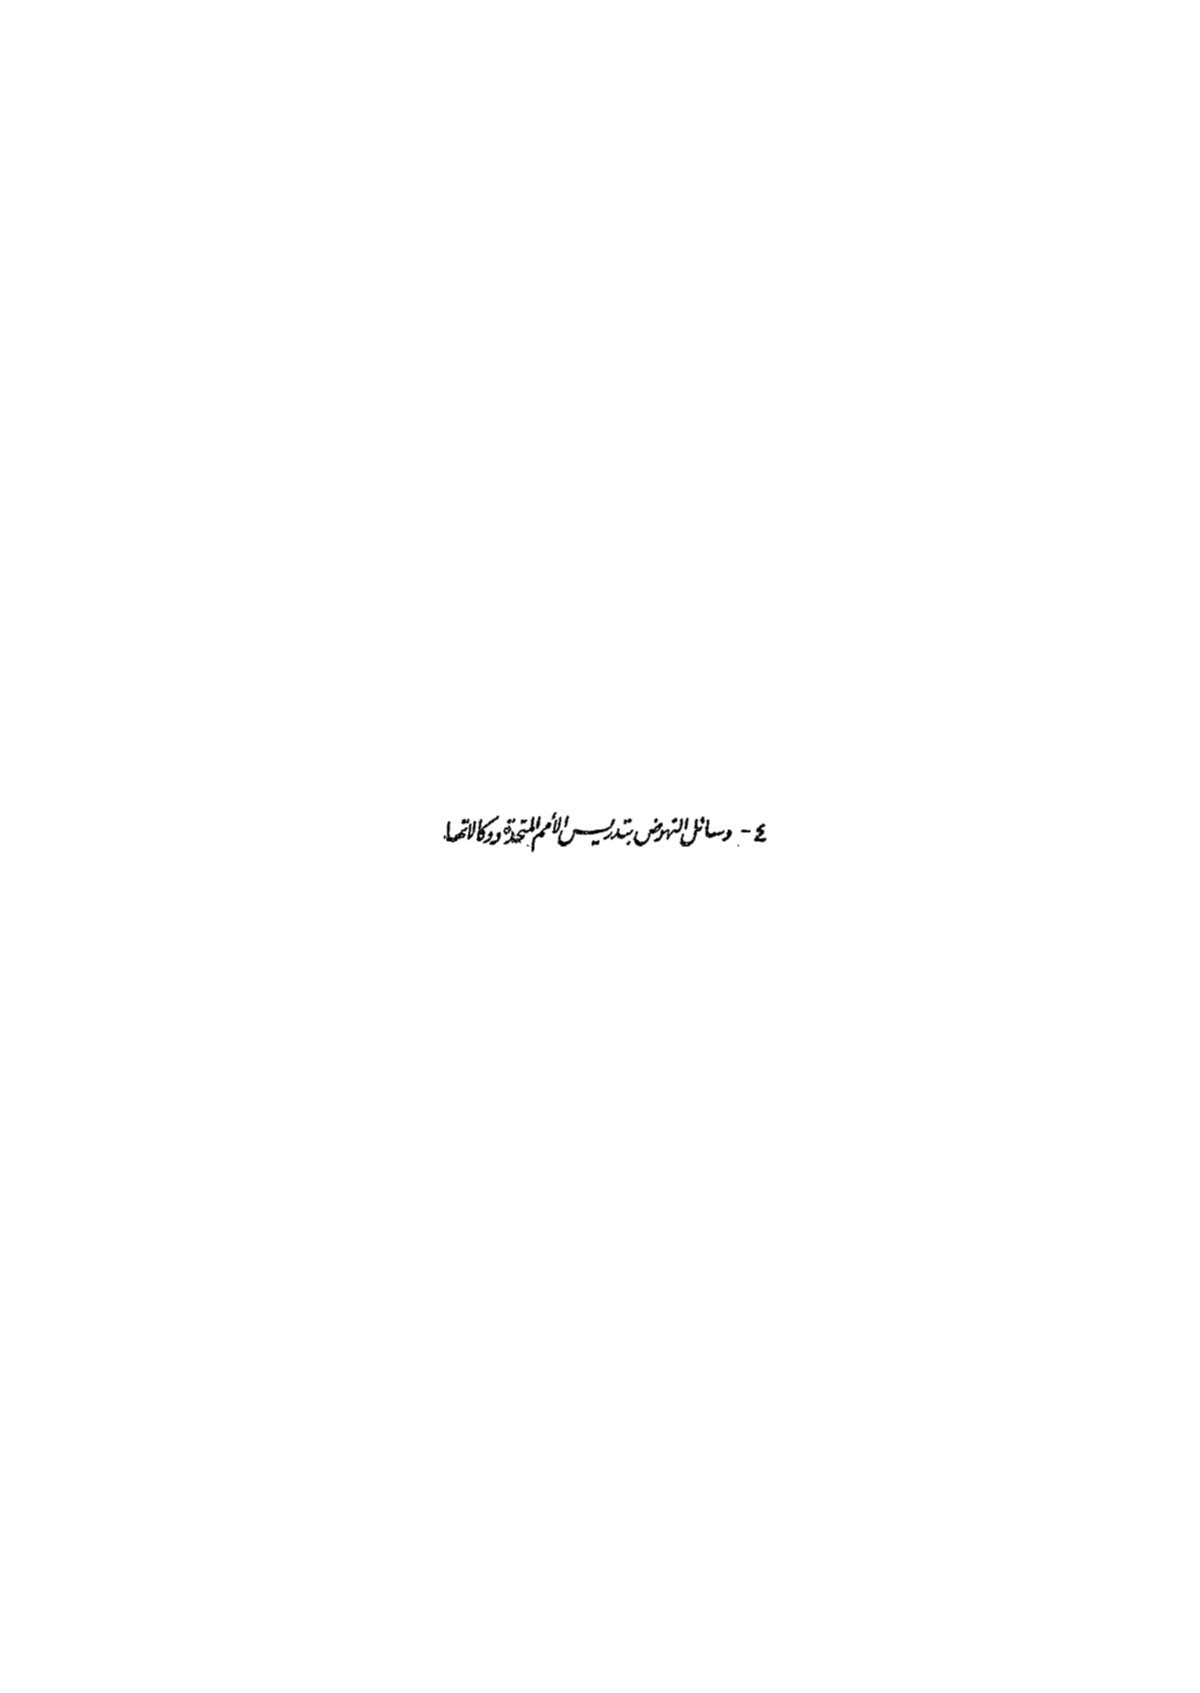 ٤- وسائل النهوض بتدريس الأمم المتحدة ووكالاتها.